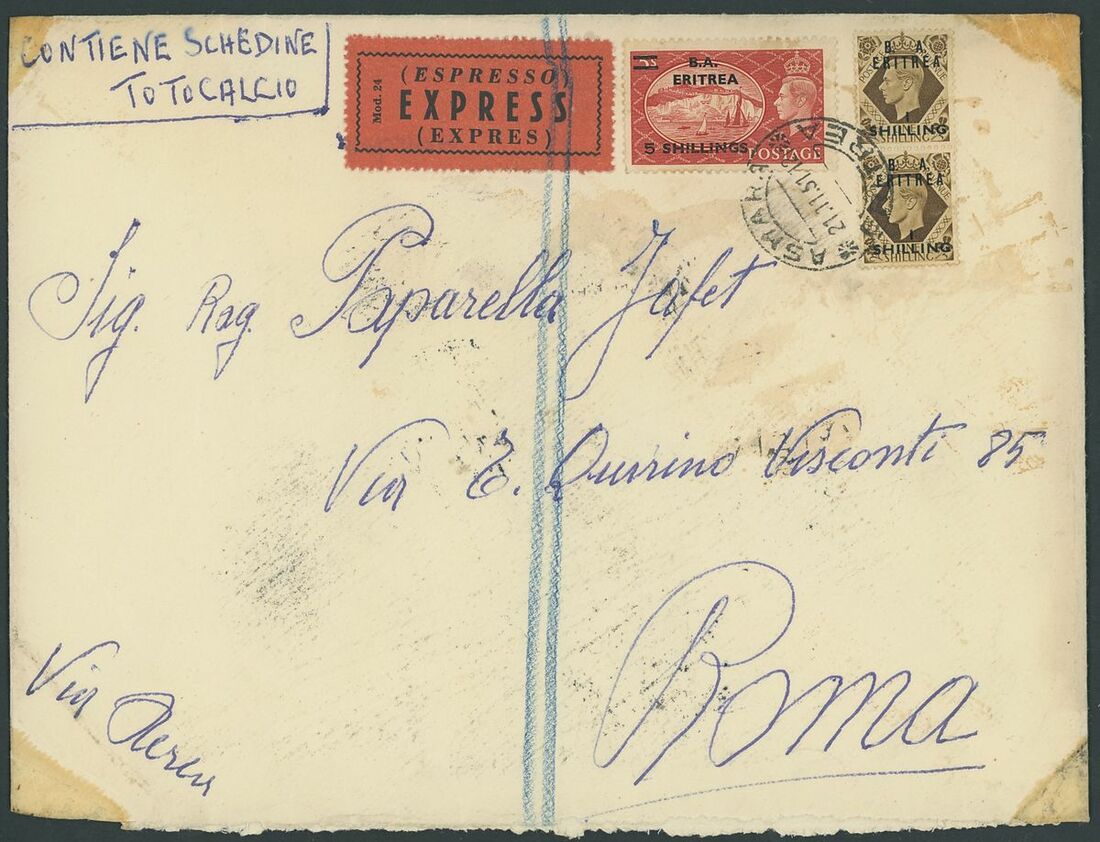 CONTIENE SCHEDINE
TOTOCALCIO
Mod. 24
(ESPRESSO)
EXPRESS
(EXPRES)
B.A.
ERITREA
5 SHILLINGS
POSTAGE
B. A.
ERITREA
1
SHILLING
SHILLING
B. A.
ERITREA
1
SHILLING
SHILLING
ASMARA
21.11.51.12
Sig. Rag. Paparella Jafet
Via E. Quirino Visconti 85
Roma
Via Aerea